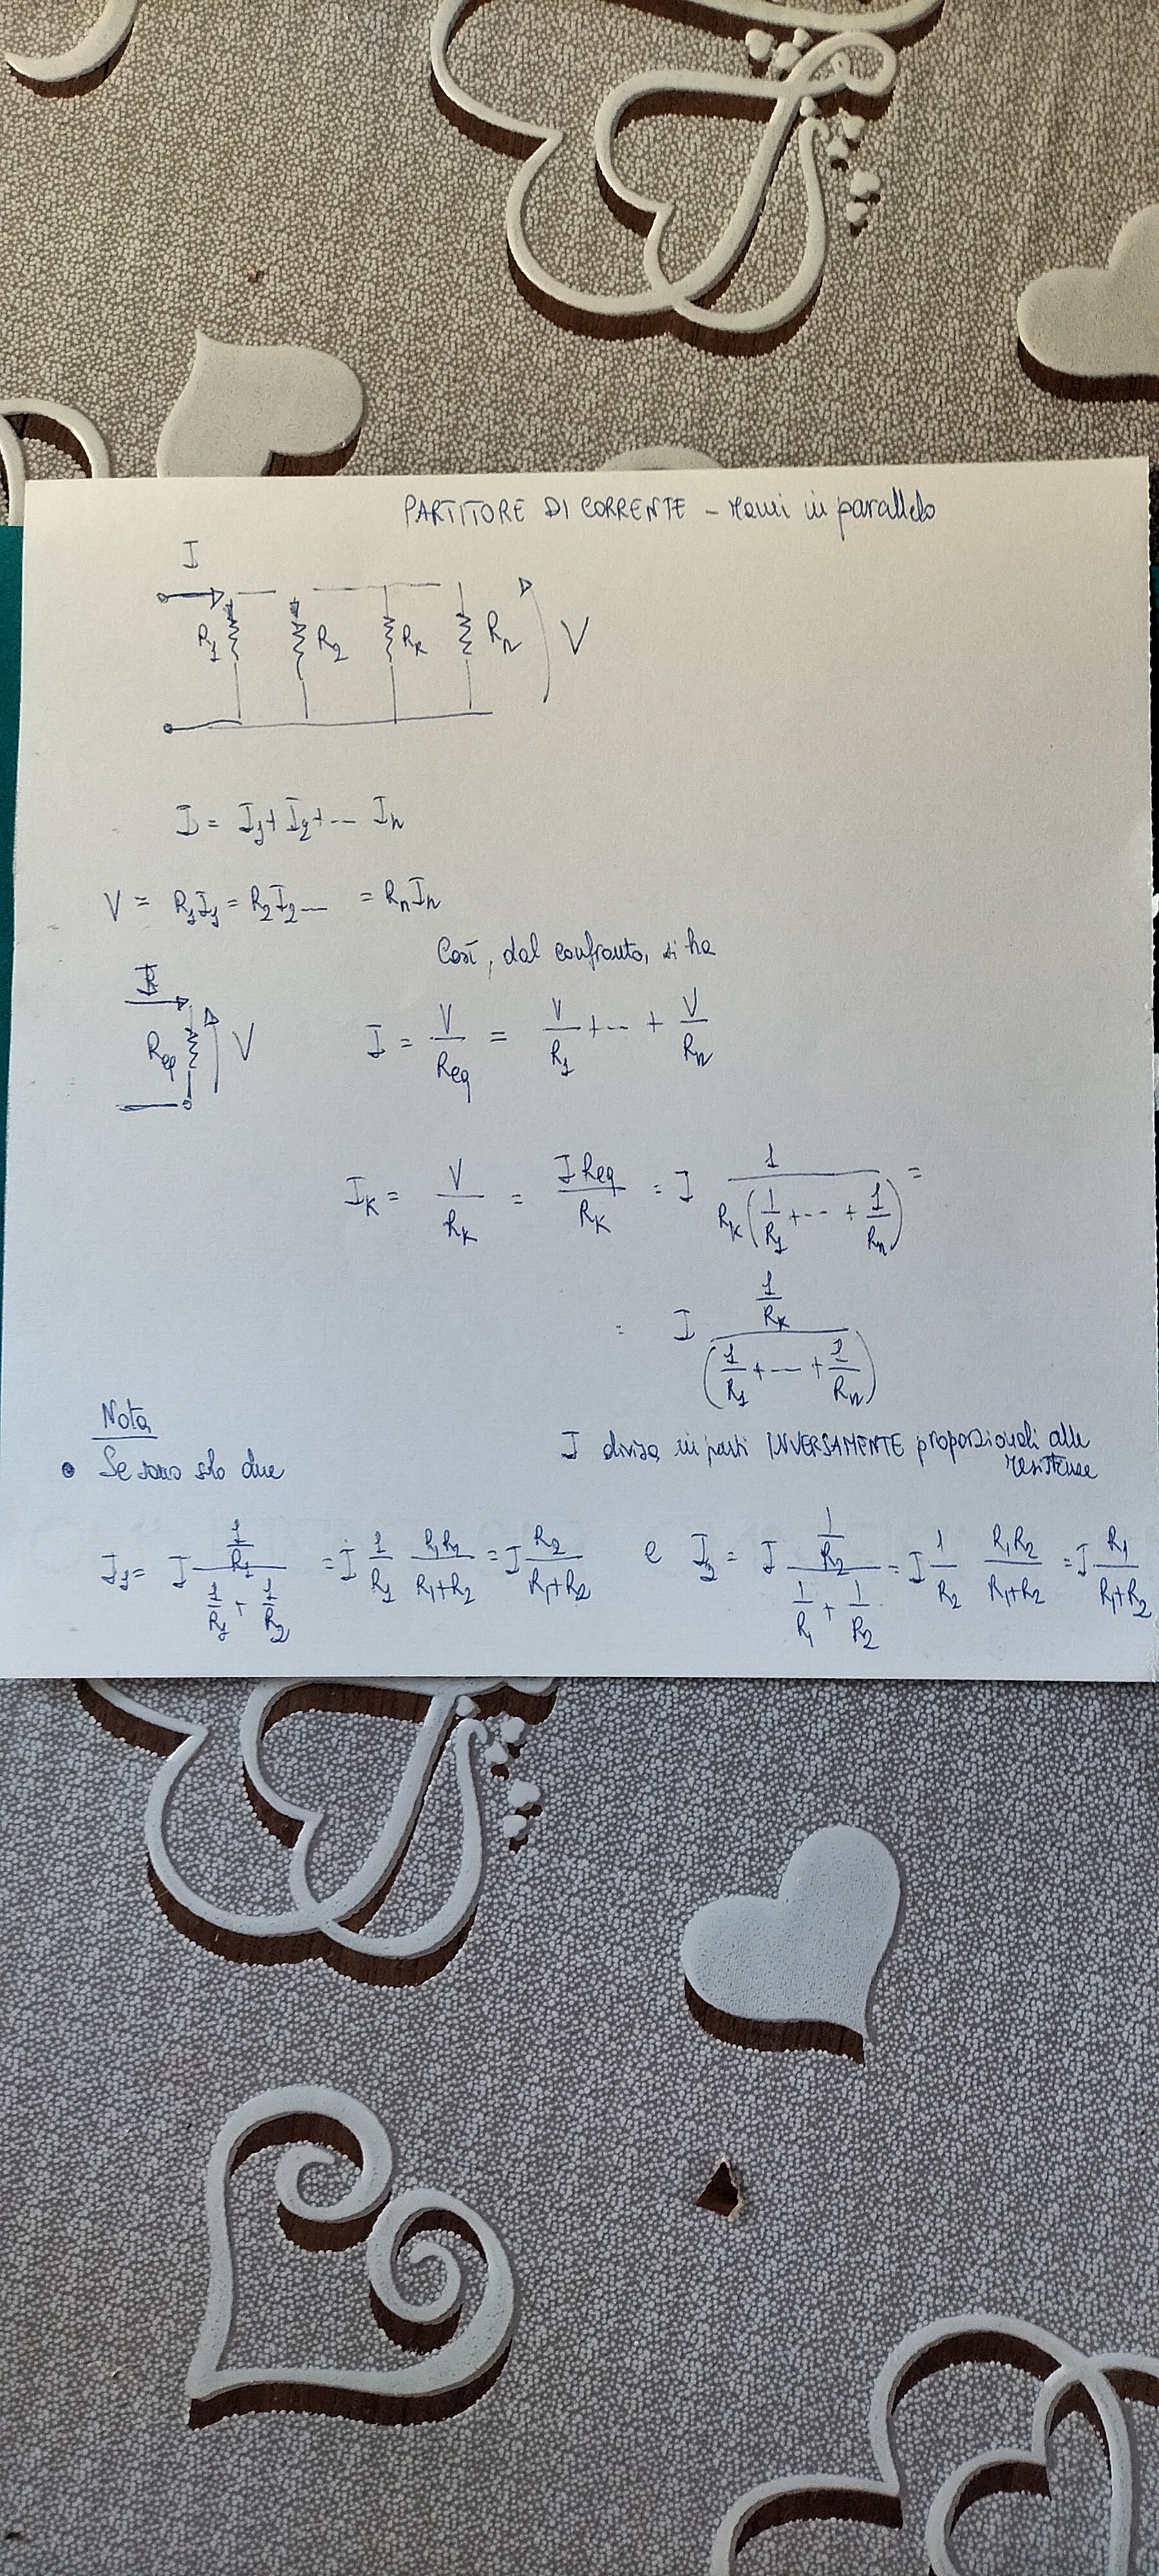 PARTITORE DI CORRENTE - rami in parallelo
I
R1 R2 RK Rn V
I = I1 + I2 + --- In
V = R1I1 = R2I2 --- = RnIn
Così, dal confronto, si ha
I
Req V
I = V/Req = V/R1 + --- + V/Rn
IK = V/RK = I Req/RK = I 1/(RK(1/R1 + --- + 1/Rn)) =
= I (1/RK)/(1/R1 + --- + 1/Rn)
Nota
I divisa in parti INVERSAMENTE proporzionali alle resistenze
• Se sono solo due
I1 = I (1/R1)/(1/R1 + 1/R2) = I 1/R1 R1R2/(R1+R2) = I R2/(R1+R2) e I2 = I (1/R2)/(1/R1 + 1/R2) = I 1/R2 R1R2/(R1+R2) = I R1/(R1+R2)